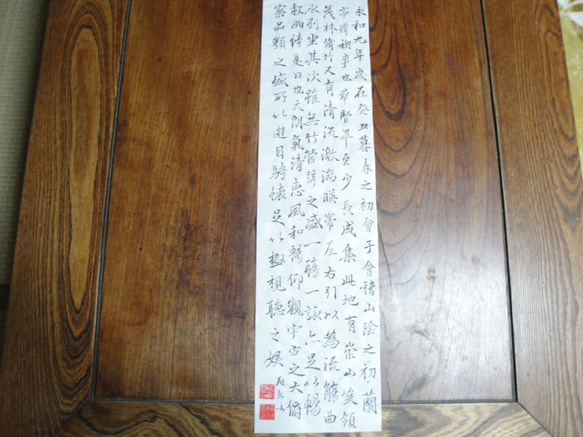 永和九年歲在癸丑暮春之初會于會稽山陰之初蘭
亭脩禊事也羣賢畢至少長咸集此地有崇山峻領
茂林脩竹又有清流激湍暎帶左右引以為流觴曲
水列坐其次雖無絲竹管弦之盛一觴一詠亦足以暢
叙幽情是日也天朗氣清惠風和暢仰觀宇宙之大俯
察品類之盛所以遊目騁懷足以極視聽之娛